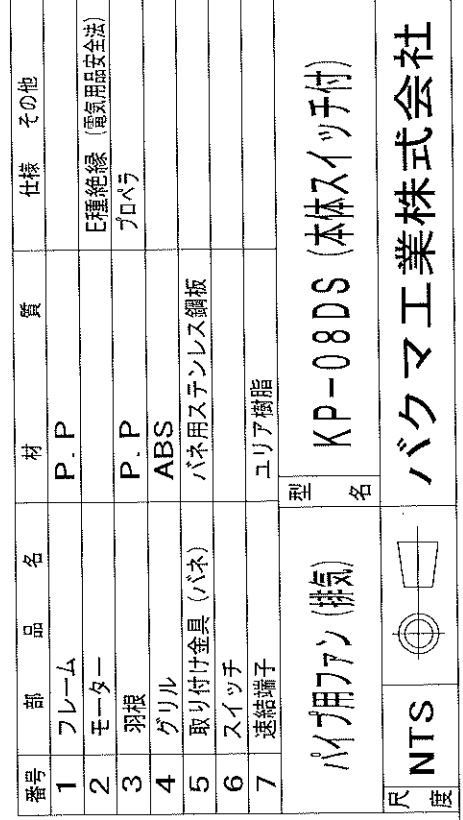 番号 部品名 材質 仕様 その他
1 フレーム P.P
2 モーター E種絶縁 (電気用品安全法)
3 羽根 P.P プロペラ
4 グリル ABS
5 取り付け金具 (バネ) バネ用ステンレス鋼板
6 スイッチ
7 速結端子 ユリア樹脂
パイプ用ファン (排気) 型名 KP-08DS (本体スイッチ付)
尺度 NTS バクマ工業株式会社